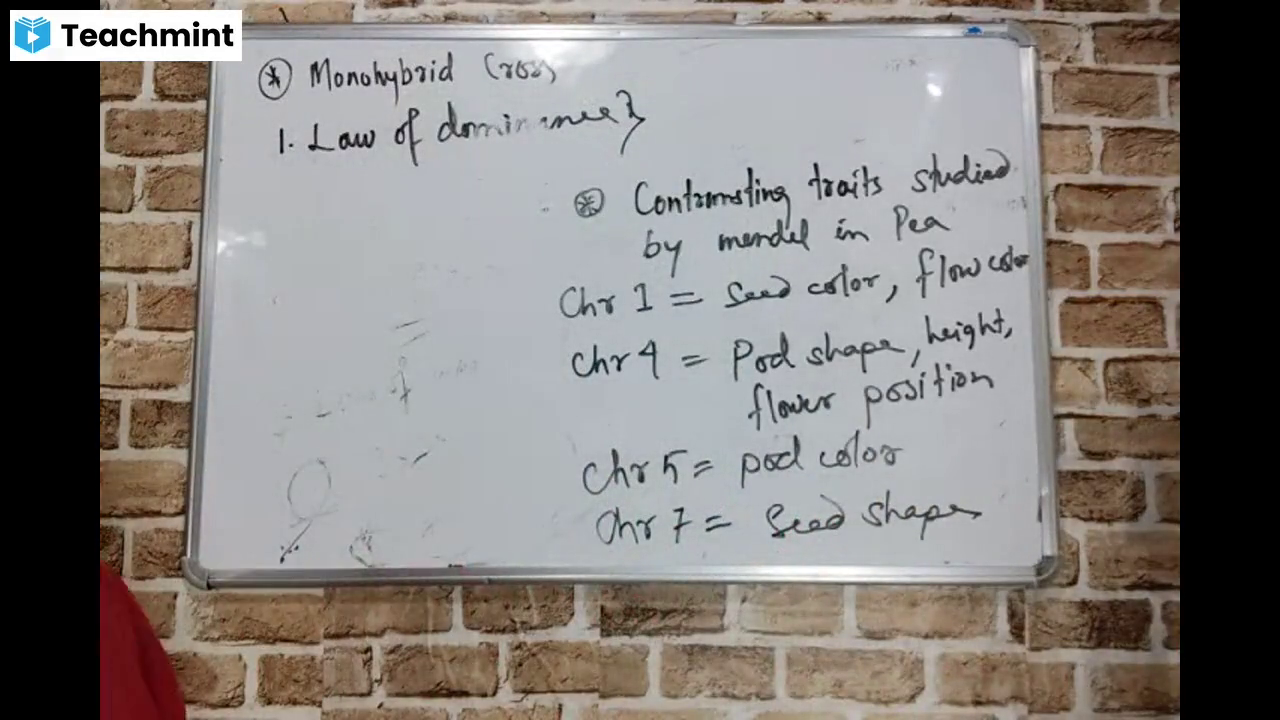 Teachmint
Monohybrid Cross
1. Law of dominance}
Contrasting traits studied
by mendel in Pea
Chr 1 = Seed color, flow color
Chr 4 = Pod shape, height,
flower position
Chr 5 = pod color
Chr 7 = Seed shape